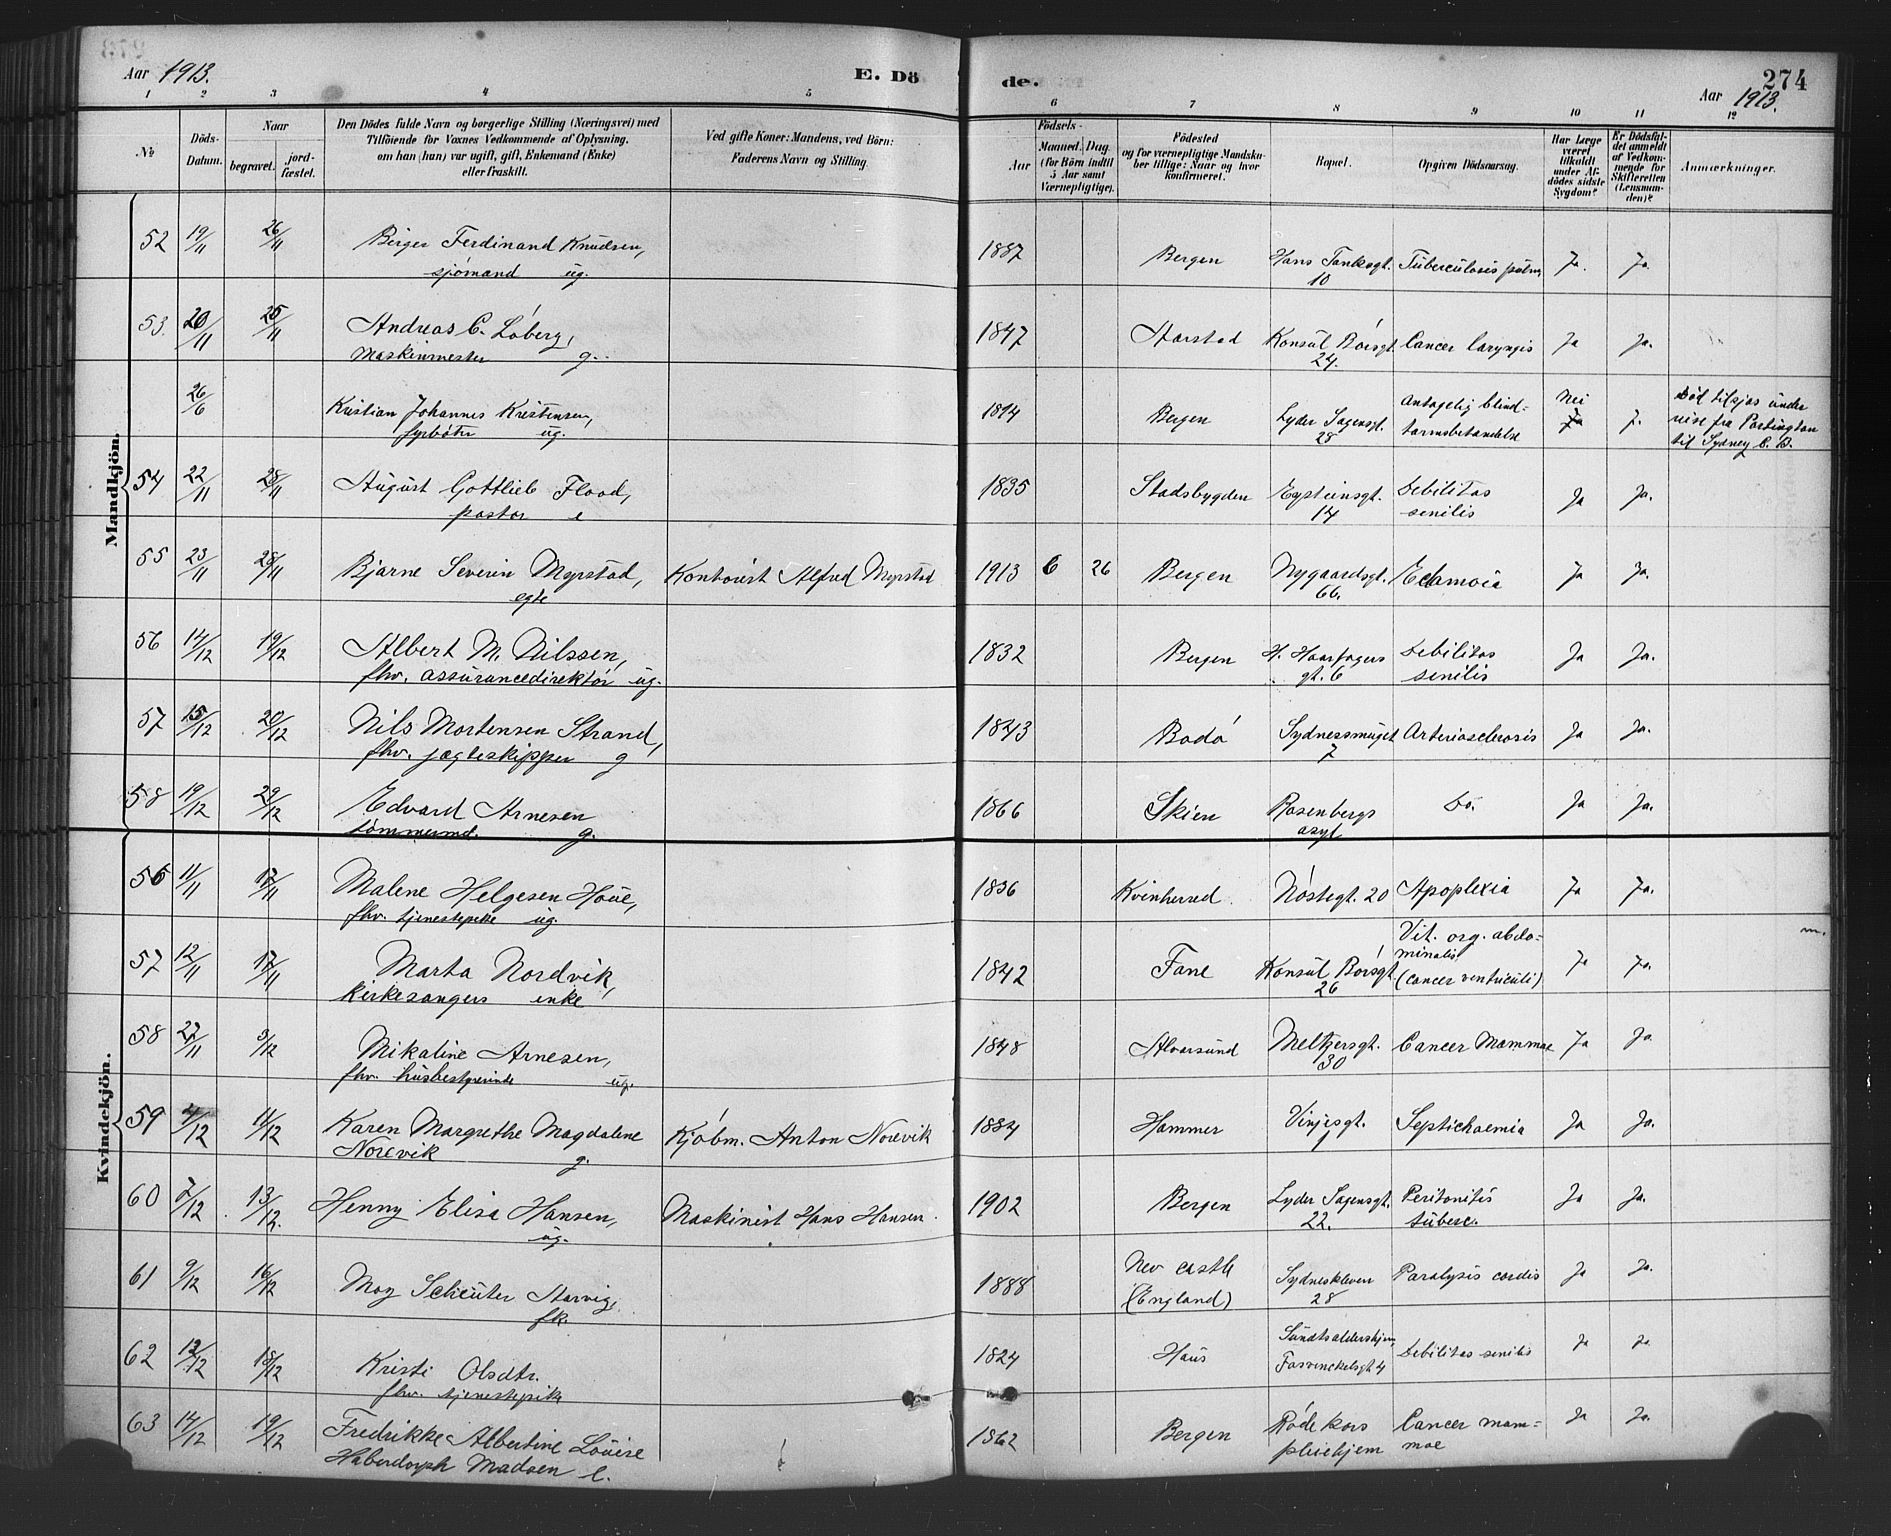 Aar 1913. E. Dö de. Aar 1913. 274
1 2 3 4 5 6 7 8 9 10 11 12
№
Döds-Datum.
Naar
begravet.
jord-fæstet.
Den Dödes fulde Navn og borgerlige Stilling (Næringsvei) med
Tilföiende for Voxnes Vedkommende af Oplysning,
om han (hun) var ugift, gift, Enkemand (Enke)
eller fraskilt.
Ved gifte Koner: Mandens, ved Börn:
Faderens Navn og Stilling.
Födsels-
Aar
Maaned. Dag
(for Börn indtil
5 Aar samt
Værnepligtige).
Födested
og for værnepligtige Mandskaber tillige: Naar og hvor
konfirmeret.
Bopæl.
Opgiven Dödsaarsag.
Har Læge
været
tilkaldt
under Afdödes sidste
Sygdom?
Er Dödsfaldet anmeldt
af Vedkommende for
Skifteretten
(Lensmanden)?
Anmærkninger.
Mandkjön.
52 19/11 26/11 Birger Ferdinand Knudsen, 1887 Bergen Hans Tanksgt. Tuberculosis pulm Ja. Ja.
sjømand ug. 10
53. 20/11 25/11 Andreas C. Løberg, 1847 Harstad Konsul Børsgt. Cancer laryngis Ja Ja.
Maskinmester g. 24.
26/6 Kristian Johannes Kristensen, 1894 Bergen Lyder Sagensgt. Antagelig blind- Nei J. Død tilsjøs under
fyrbøter ug. 28 tarmsbetændelse Ja reise fra Portington
til Sydney C. B.
54 22/11 28/11 August Gottlieb Flood, 1835 Stadsbygden Eysteinsgt. Debilitas Ja Ja.
pastor e 14 senilis
55 23/11 28/11 Bjarne Severin Myrstad, Kontorist Alfred Myrstad 1913 6 26 Bergen Nygaardsgt. Ja Ja.
egte 66.
56 14/12 19/12 Albert M. Nilssen, 1832 Bergen H. Haarfagers Debilitas Ja Ja.
fhv. assurancedirektør ug. gt. 6 senilis
57 15/12 20/12 Nils Mortensen Strand, 1843 Bodø Sydnessmuget Arteriosclerosis Ja Ja.
fhv. jægteskipper g 7
58 19/12 29/12 Edvard Arnesen 1866 Skien Rosenbergs Do. Ja Ja.
tømmermd. g. asyl
Kvindekjön.
56 11/11 17/11 Malene Helgesen Houe, 1836 Kvinherred. Nøstegt. 20 Apoplexia Ja Ja.
fhv. tjenestepike ug.
57 12/11 17/11 Marta Nordvik, 1842 Fane Konsul Børsgt. Vit. org. abdo- Ja Ja.
minalis
kirkesangers enke 26 (cancer ventriculi)
58 27/11 3/12 Mikaline Arnesen, 1848 Alversund Meltzersgt. Cancer Mammae Ja Ja.
fhv. husbestyrerinde ug. 30
59 4/12 11/12 Karen Margrethe Magdalene Kjøbm. Anton Norevik 1884 Hammer Vinjesgt. Septichaemia Ja Ja.
Norevik g. 1
60 7/12 13/12. Henny Elisa Hansen, Maskinist Hans Hansen. 1902 Bergen Lyder Sagensgt. Peritonitis Ja Ja.
ug. 22. tuberc.
61 9/12 16/12 May Schlüter Aarvig, 1888 New castle Sydneskleven Paralysis cordis Ja Ja.
fk. (England) 28
62 12/12 18/12 Kristi Olsdtr. 1824 Haus Sundtsaldershjem, Debilitas senilis Ja Ja.
fhv. tjenestepike Fosvinckelsgt 4
63 14/12 19/12 Fredrikke Albertine Louise 1862 Bergen Røde kors Cancer mam- Ja Ja.
Haberdorph Madsen e. pleiehjem mae